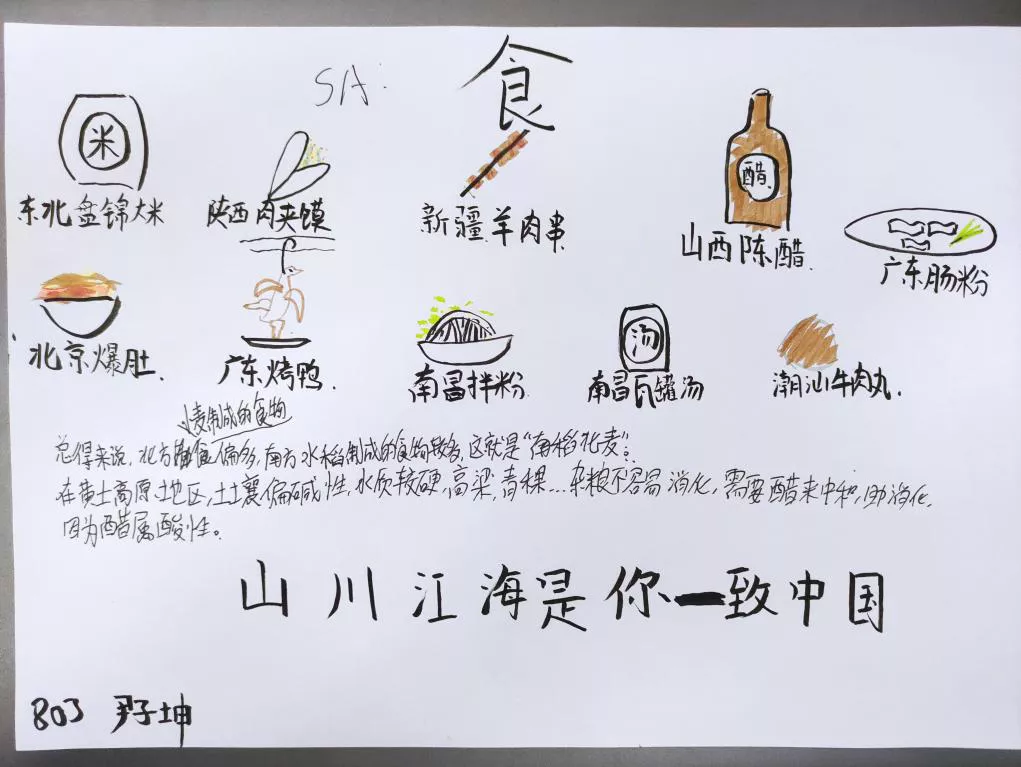 食
5A.
米
醋
东北盘锦大米
陕西肉夹馍
新疆羊肉串
山西陈醋.
广东肠粉
汤
北京爆肚.
广东烤鸭.
南昌拌粉.
南昌瓦罐汤
潮汕牛肉丸.
小麦制成的食物
总得来说, 北方偏多, 南方水稻制成的食物较多, 这就是“南稻北麦”。
在黄土高原地区, 土壤偏碱性, 水质较硬, 高粱, 青稞...杂粮不容易消化, 需要醋来中和, 助消化,
因为醋属酸性。
山川江海是你一致中国
803 坤